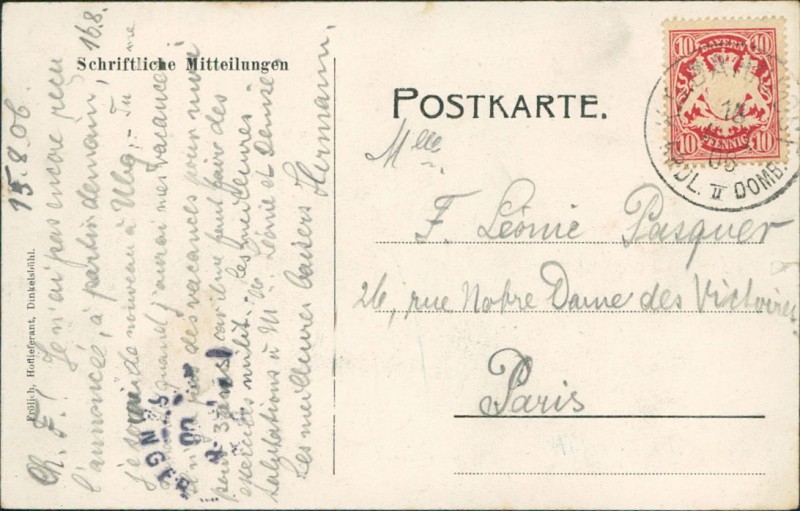 Schriftliche Mitteilungen
POSTKARTE.
10 BAYERN 10
10 PFENNIG 10
BAHN
14
06
II DOMB.
Frölich, Hoflieferant, Dinkelsbühl.
15.8.06.
Ch. F.! Je n'ai pas encore reçu
l'annoncée, à partir demain, 16.8.
je serai de nouveau à Ulm. - Tu me
quand j'aurai mes vacances
des vacances pour moi
car il me faut faire des
exercices milit. - Les meilleures
salutations à Mme Léonie et Denise
Les meilleures baisers Hermann.
Mlle
F. Léonie Pasquer
26, rue Notre Dame des Victoires
Paris